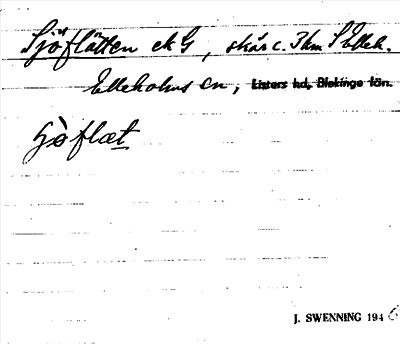 Sjöflätten ek G, skär c. 3 km S Elleh.
Elleholms sn, Listers hd, Blekinge län.
flæt
J. SWENNING 1946